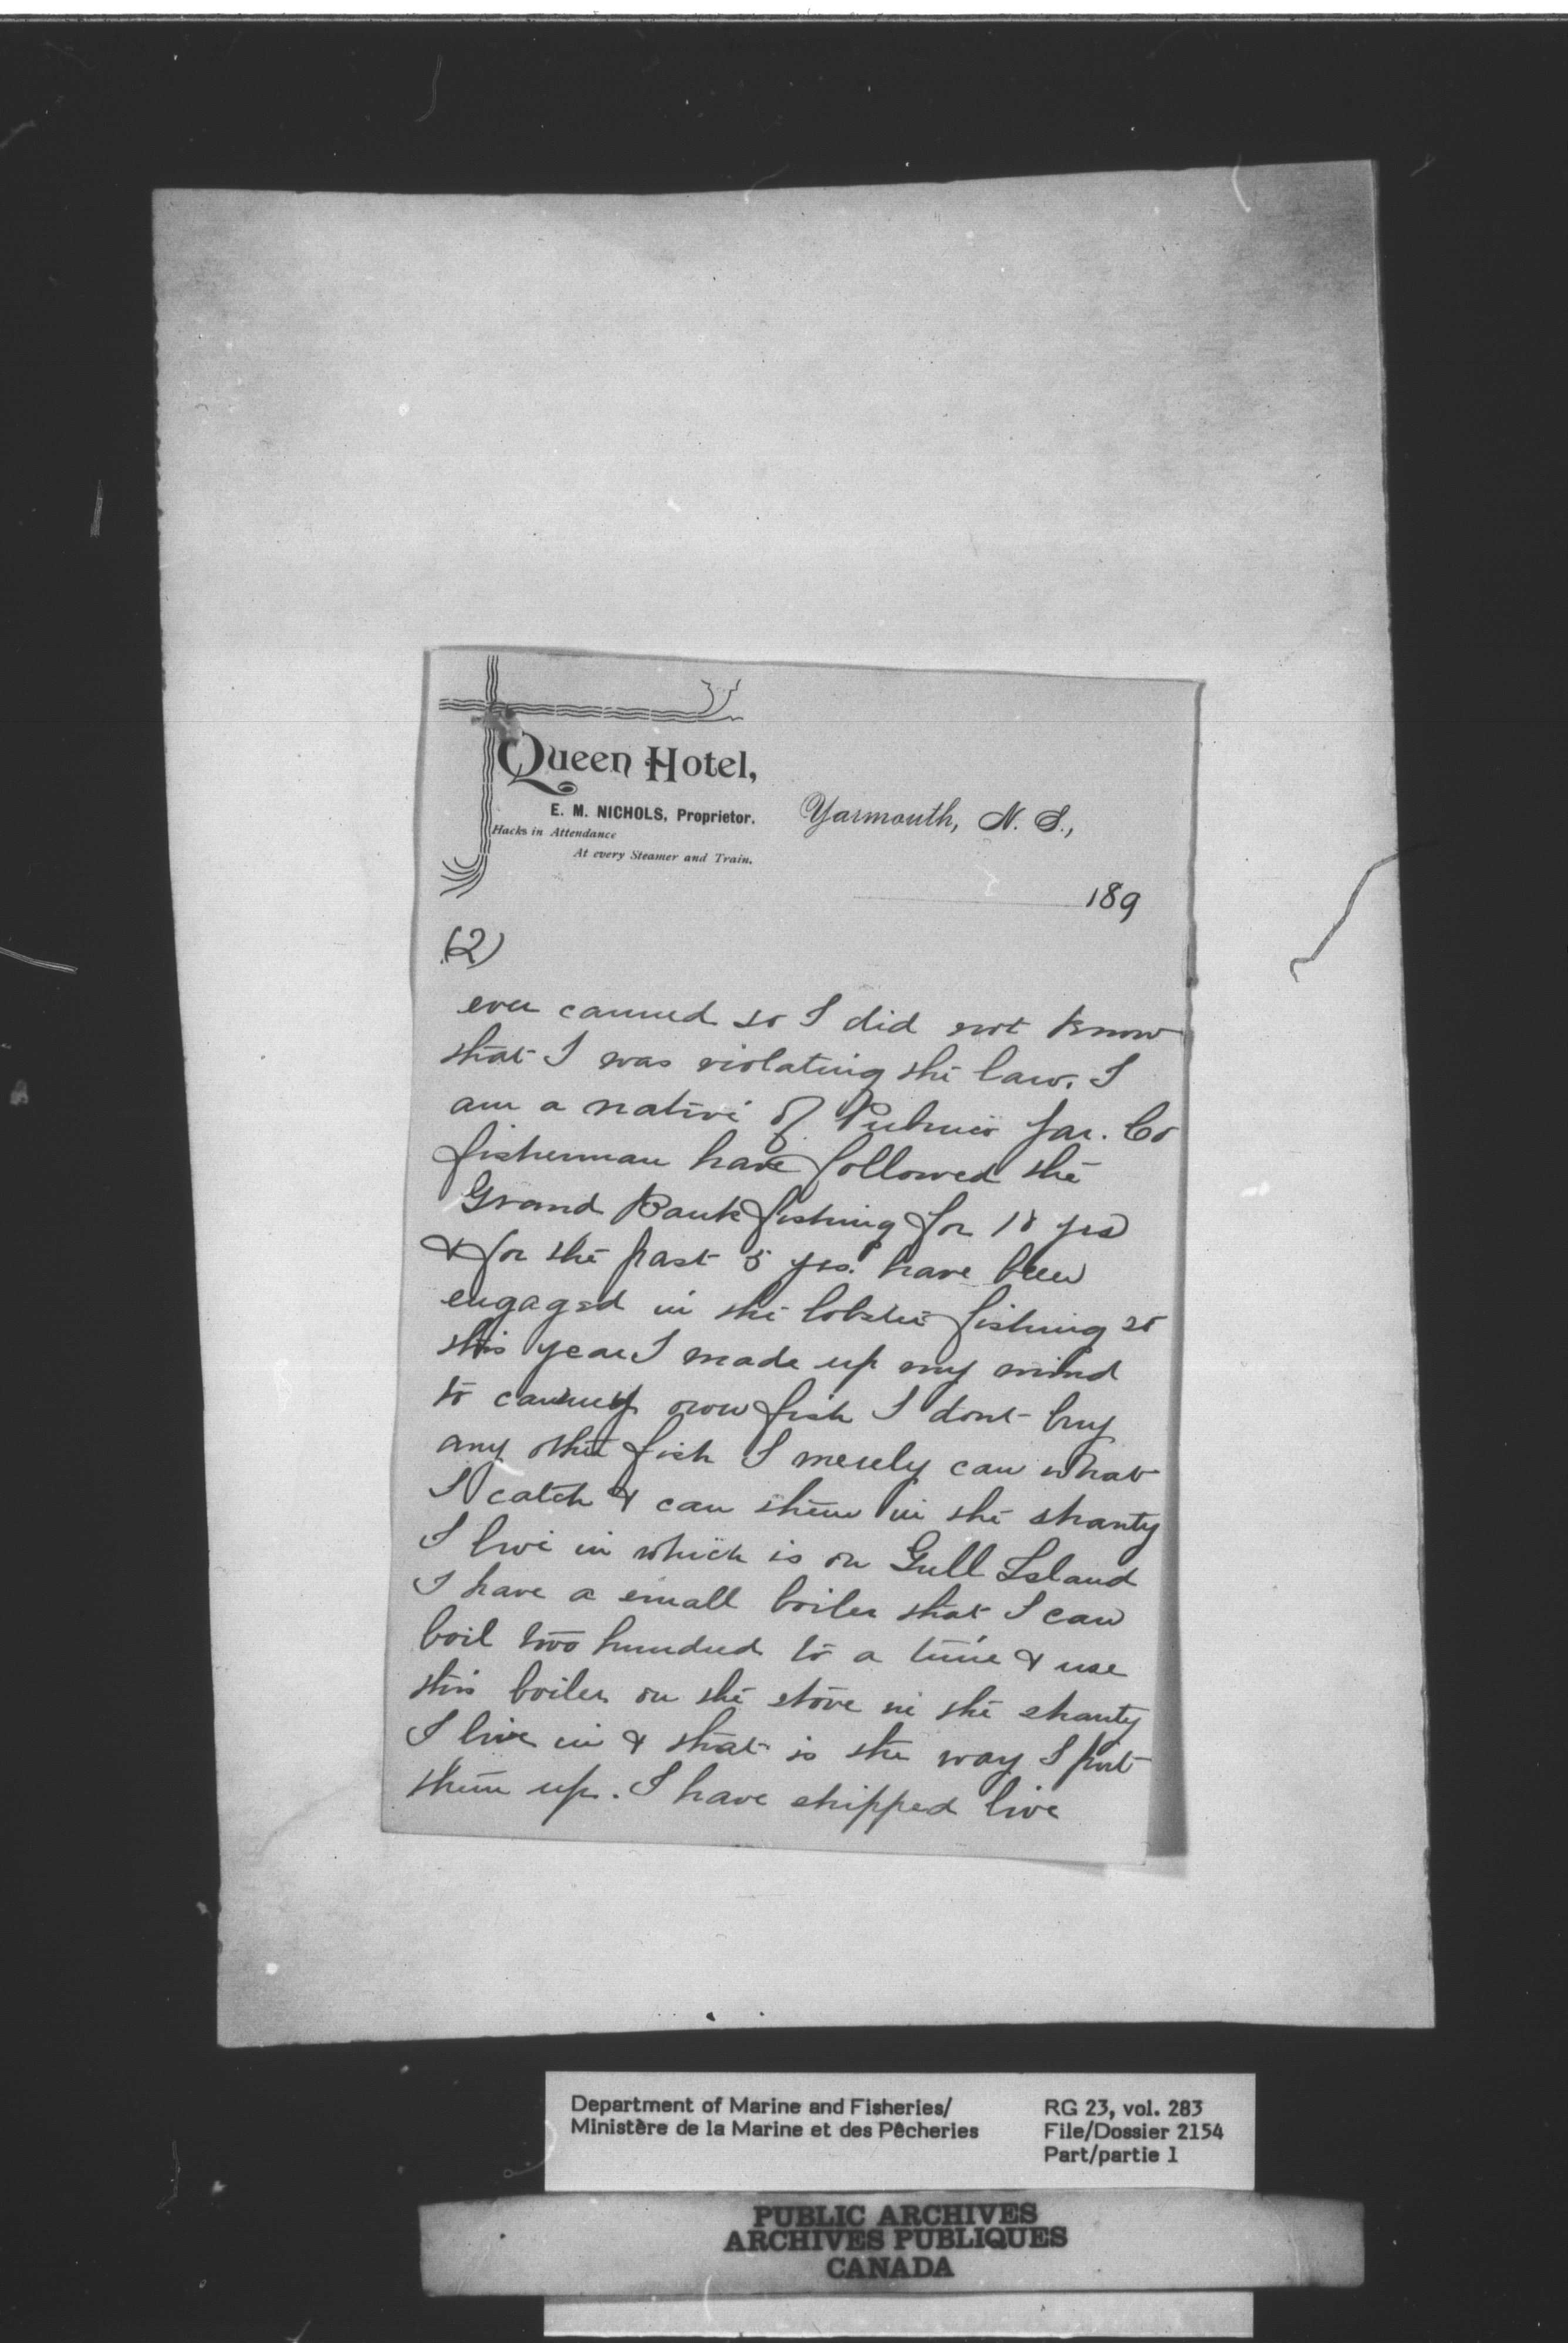 Queen Hotel,
E. M. NICHOLS, Proprietor.
Hacks in Attendance
At every Steamer and Train.
Yarmouth, N. S.,
189
(2)
ever canned so I did not know
that I was violating the law. I
am a native of Pubnico Yar. Co
fisherman have followed the
Grand Bank fishing for 18 yrs
& for the past 5 yrs. have been
engaged in the lobster fishing so
this year I made up my mind
to can my own fish I dont buy
any other fish I merely can what
I catch & can them in the shanty
I live in which is on Gull Island
I have a small boiler that I can
boil two hundred to a time & use
this boiler on the stove in the shanty
I live in & that is the way I put
them up. I have shipped live
Department of Marine and Fisheries/
Ministère de la Marine et des Pêcheries
RG 23, vol. 283
File/Dossier 2154
Part/partie 1
PUBLIC ARCHIVES
ARCHIVES PUBLIQUES
CANADA